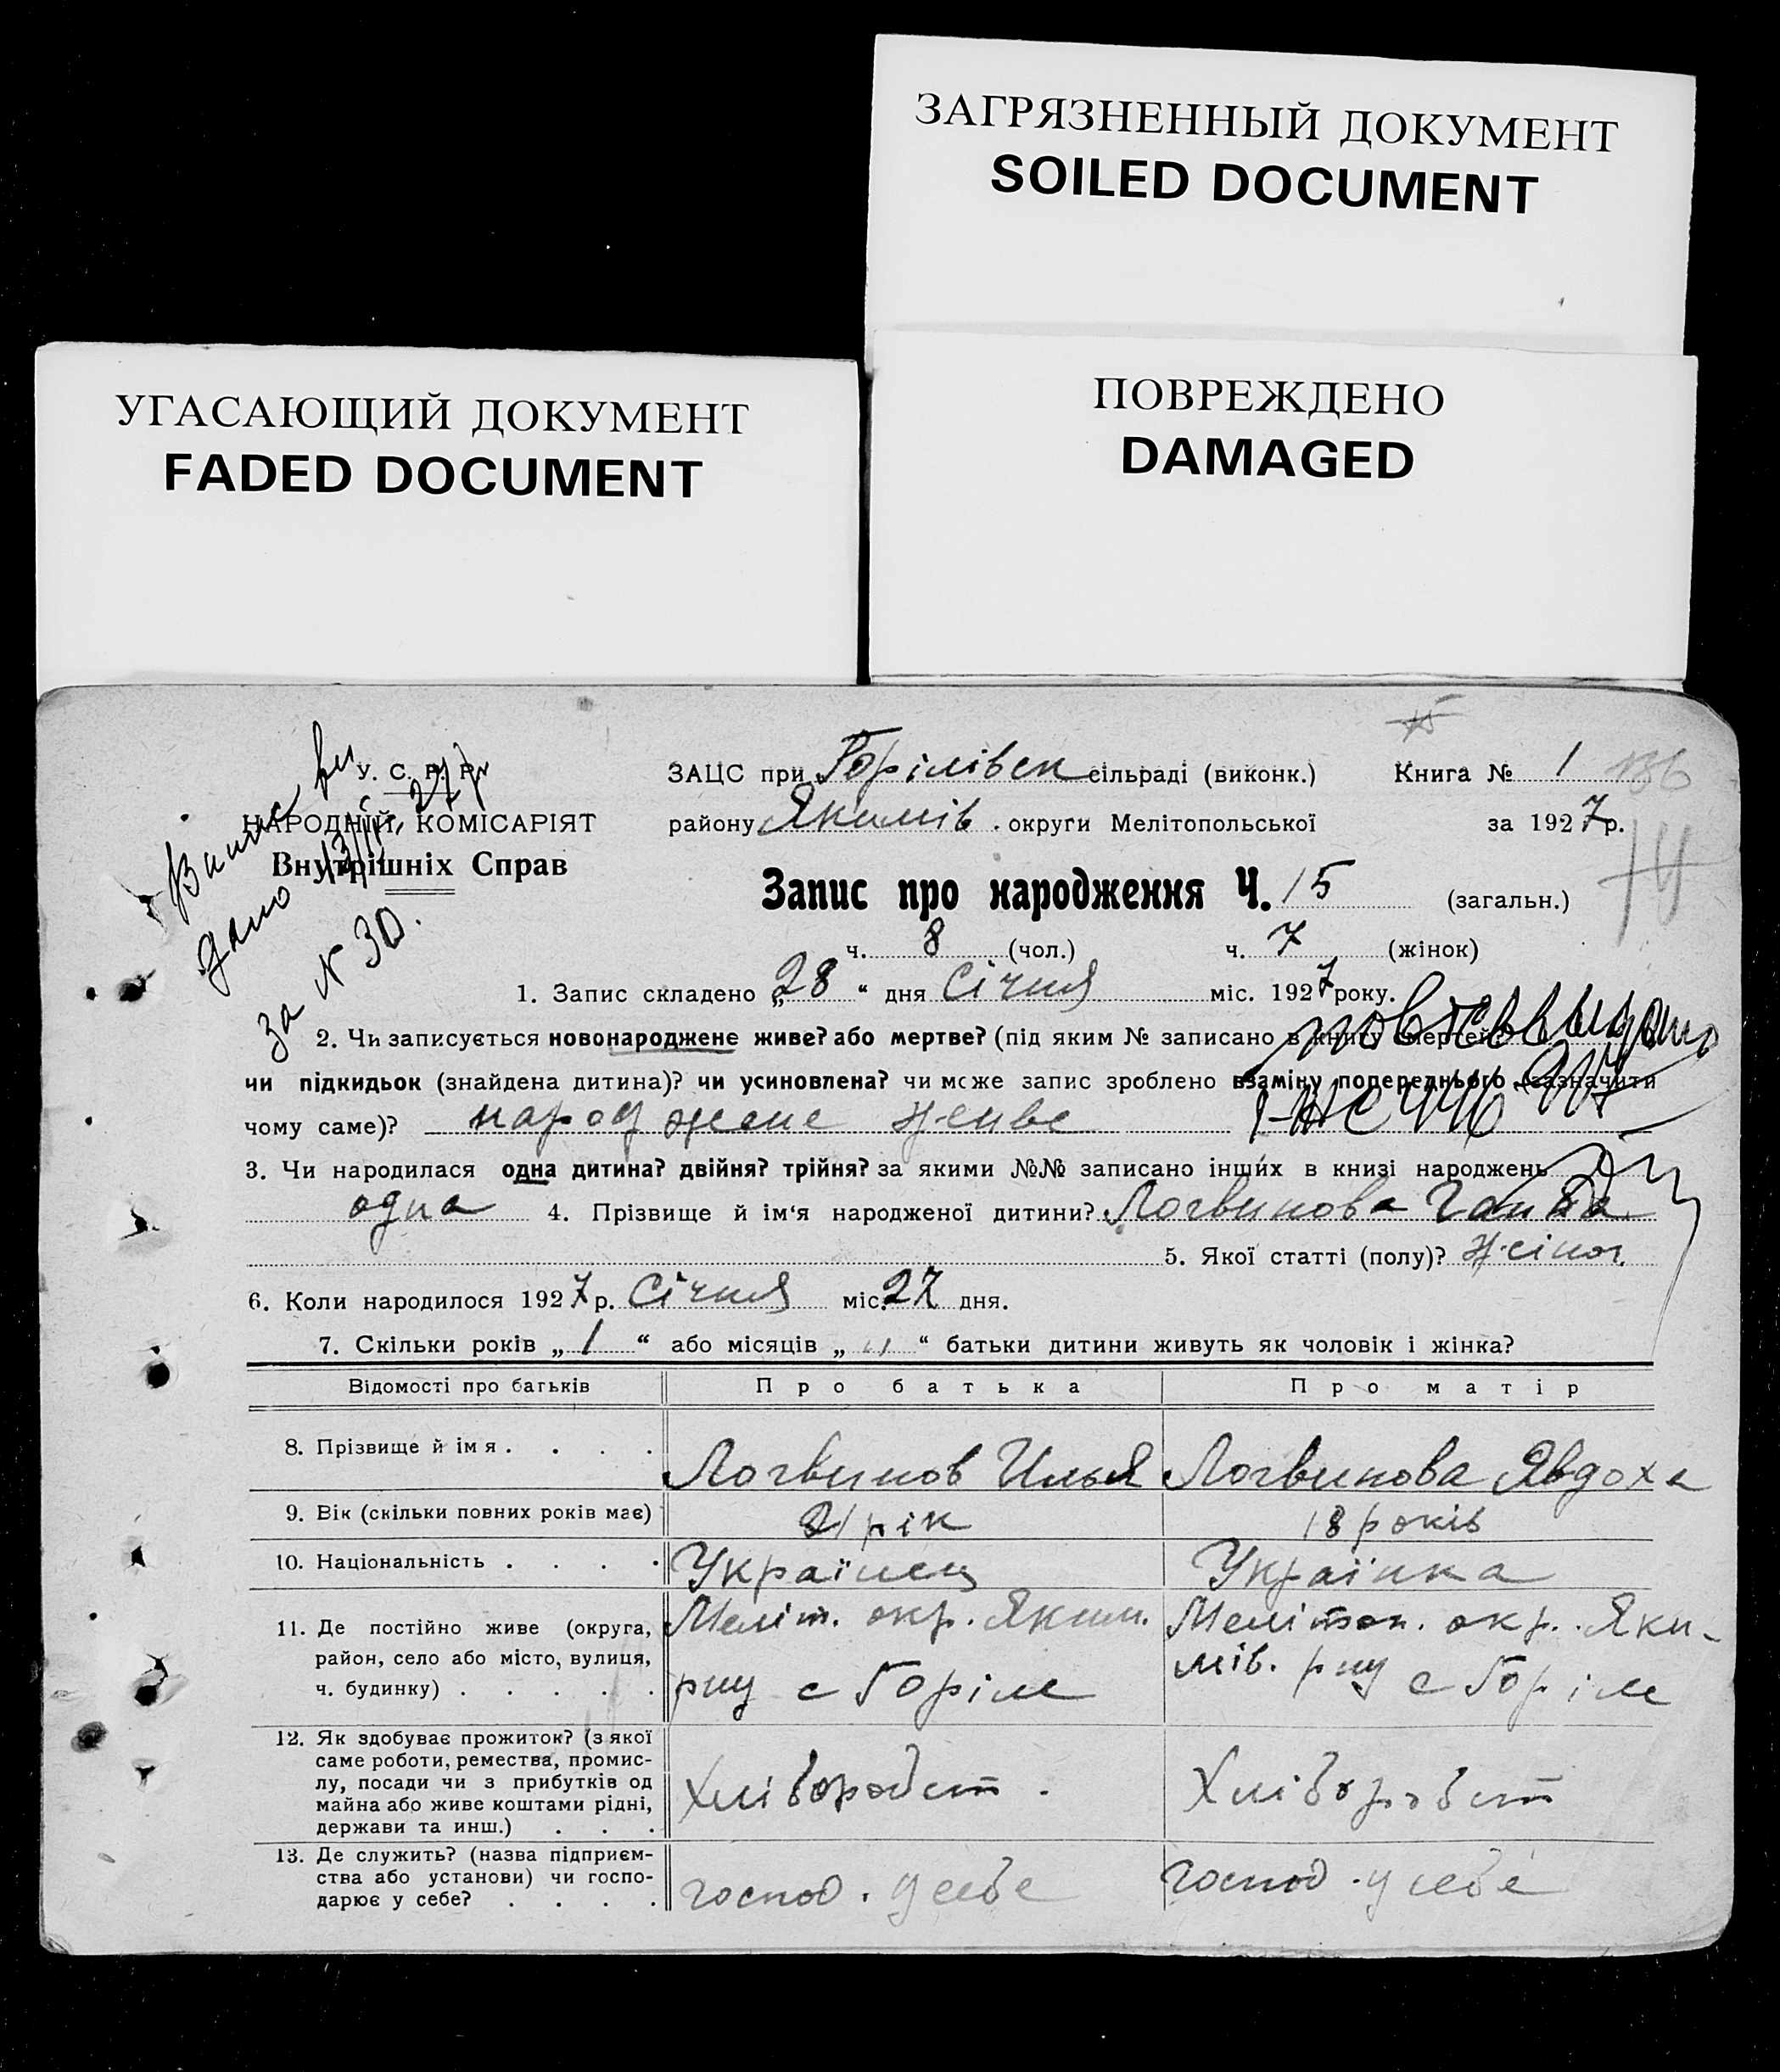 ЗАГРЯЗНЕННЫЙ ДОКУМЕНТ
SOILED DOCUMENT
УГАСАЮЩИЙ ДОКУМЕНТ
FADED DOCUMENT
ПОВРЕЖДЕНО
DAMAGED
У. С. Р. Р.
НАРОДНІЙ КОМІСАРІЯТ
Внутрішніх Справ
Запис
дано
за № 30.
ЗАЦС при Горілівск сільраді (виконк.) Книга № 1 136
району Якимів. округи Мелітопольської за 1927 р.
Запис про народження Ч. 15 (загальн.)
ч. 8 (чол.) ч. 7 (жінок)
1. Запис складено „28“ дня Січня міс. 1927 року.
2. Чи записується новонароджене живе? або мертве? (під яким № записано в книгу мертвих)
чи підкидьок (знайдена дитина)? чи усиновлена? чи може запис зроблено взаміну попереднього (зазначити
чому саме)? народжене живе
3. Чи народилася одна дитина? двійня? трійня? за якими №№ записано інших в книзі народжень
одна 4. Прізвище й ім'я народженої дитини? Логвинова Ганна
5. Якої статті (полу)? жіноч.
6. Коли народилося 1927 р. Січня міс. 27 дня.
7. Скільки років „1“ або місяців „ “ батьки дитини живуть як чоловік і жінка?
Відомості про батьків Про батька Про матір
8. Прізвище й імя . . . . Логвинов Илья Логвинова Явдоха
9. Вік (скільки повних років має) 21 рік 18 років
10. Національність . . . . Українец Українка
11. Де постійно живе (округа, Меліт. окр. Яким. Мелітоп. окр. Яки-
район, село або місто, вулиця, мів. рну
ч. будинку) . . . . . рну с Горіле с Горіле
12. Як здобуває прожиток? (з якої
саме роботи, ремества, промис-
лу, посади чи з прибутків од Хліборобст. Хліборобст
майна або живе коштами рідні,
держави та инш.) . . .
13. Де служить? (назва підприєм-
ства або установи) чи госпо- господ. у себе господ. у себе
дарює у себе? . . . .